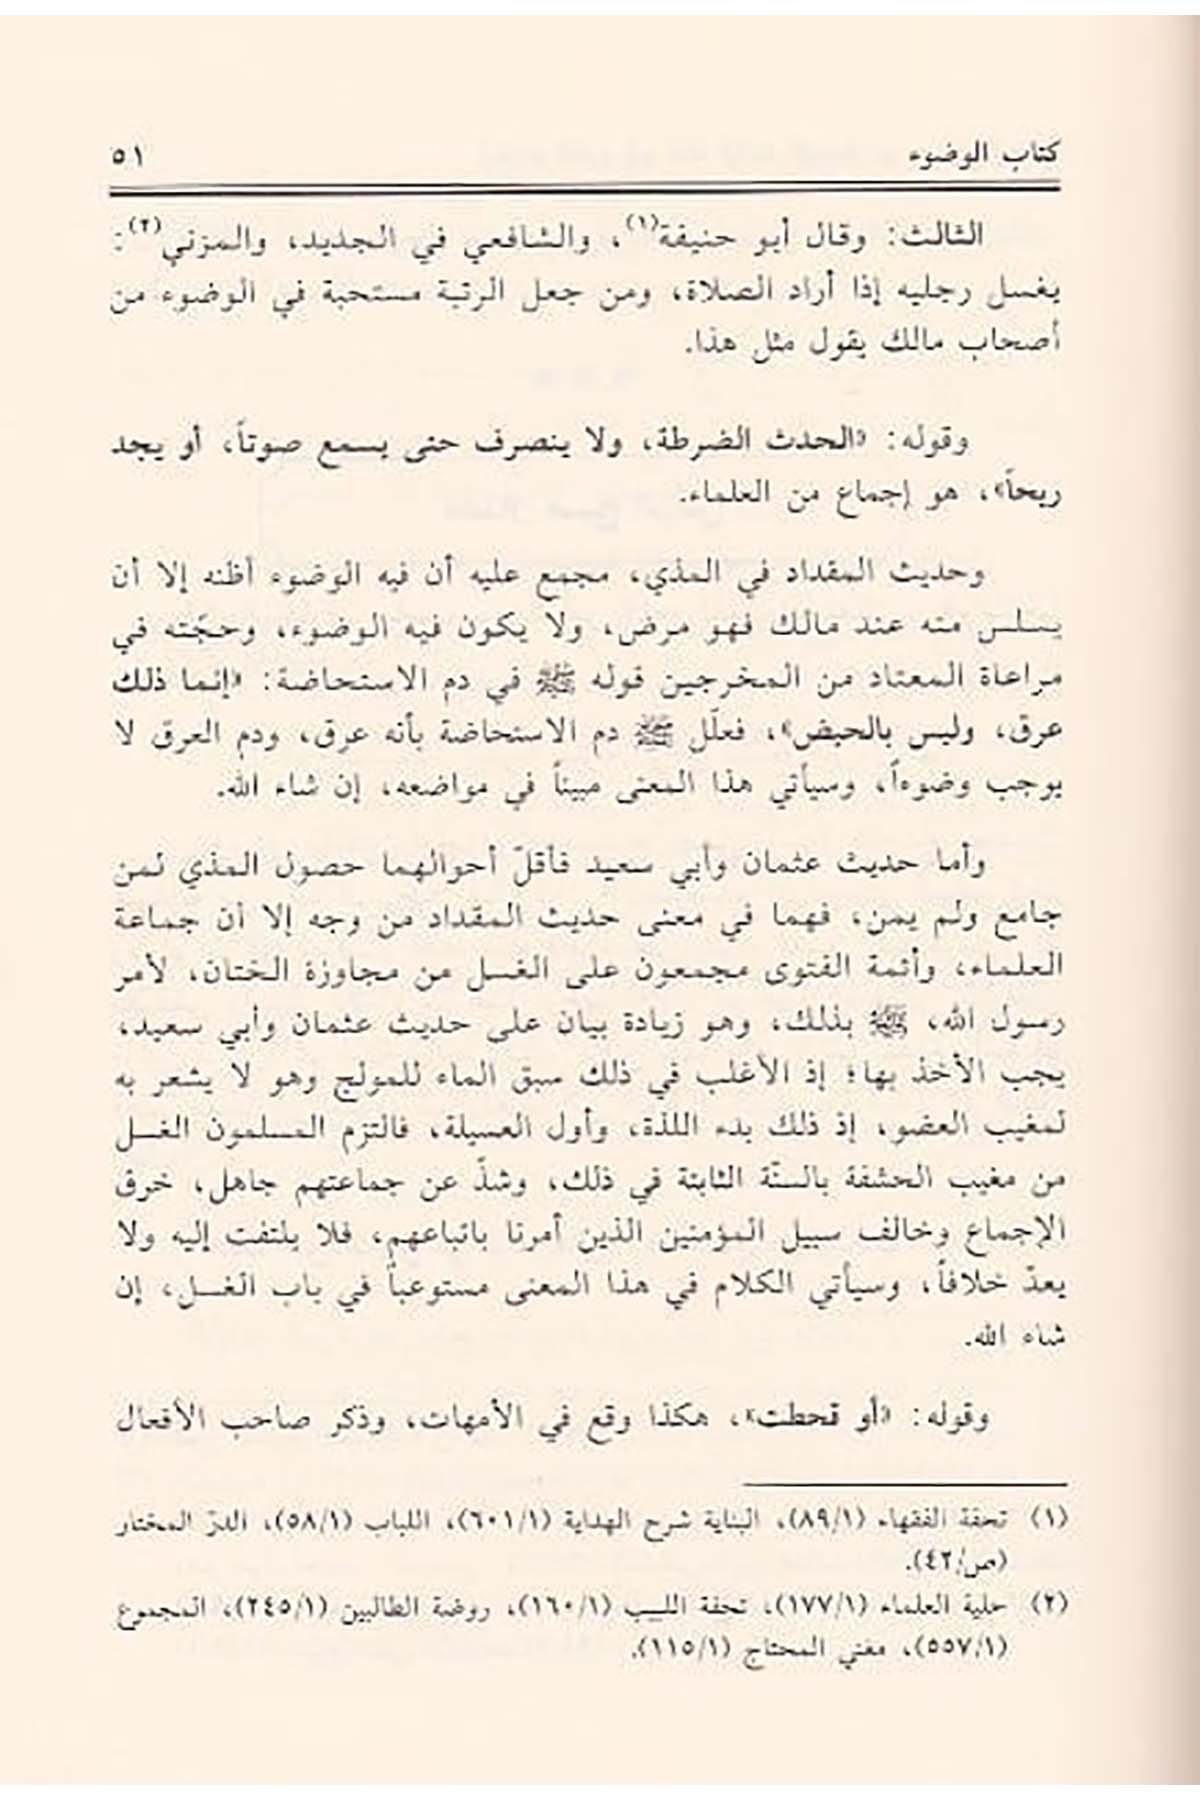 كتاب الوضوء ٥١
الثالث: وقال أبو حنيفة(١)، والشافعي في الجديد، والمزني(٢):
يغسل رجليه إذا أراد الصلاة، ومن جعل الرتبة مستحبة في الوضوء من
أصحاب مالك يقول مثل هذا.
وقوله: «الحدث الضرطة، ولا ينصرف حتى يسمع صوتاً، أو يجد
ريحاً»، هو إجماع من العلماء.
وحديث المقداد في المذي، مجمع عليه أن فيه الوضوء أظنه إلا أن
يسلس منه عند مالك فهو مرض، ولا يكون فيه الوضوء، وحجّته في
مراعاة المعتاد من المخرجين قوله ﷺ في دم الاستحاضة: «إنما ذلك
عرق، وليس بالحيض»، فعلّل ﷺ دم الاستحاضة بأنه عرق، ودم العرق لا
يوجب وضوءاً، وسيأتي هذا المعنى مبيناً في مواضعه، إن شاء الله.
وأما حديث عثمان وأبي سعيد فأقلّ أحوالهما حصول المذي لمن
جامع ولم يمن، فهما في معنى حديث المقداد من وجه إلا أن جماعة
العلماء، وأئمة الفتوى مجمعون على الغسل من مجاوزة الختان، لأمر
رسول الله، ﷺ بذلك، وهو زيادة بيان على حديث عثمان وأبي سعيد،
يجب الأخذ بها؛ إذ الأغلب في ذلك سبق الماء للمولج وهو لا يشعر به
لمغيب العضو، إذ ذلك بدء اللذة، وأول العسيلة، فالتزم المسلمون الغسل
من مغيب الحشفة بالسنّة الثابتة في ذلك، وشذّ عن جماعتهم جاهل، خرق
الإجماع وخالف سبيل المؤمنين الذين أمرنا باتباعهم، فلا يلتفت إليه ولا
يعدّ خلافاً، وسيأتي الكلام في هذا المعنى مستوعباً في باب الغسل، إن
شاء الله.
وقوله: «أو قحطت»، هكذا وقع في الأمهات، وذكر صاحب الأفعال
(١) تحفة الفقهاء (٨٩/١)، البناية شرح الهداية (٦٠١/١)، اللباب (٥٨/١)، الدرّ المختار
(ص/٤٢).
(٢) حلية العلماء (١٧٧/١)، تحفة اللبيب (١٦٠/١)، روضة الطالبين (٢٤٥/١)، المجموع
(٥٥٧/١)، مغني المحتاج (١١٥/١).